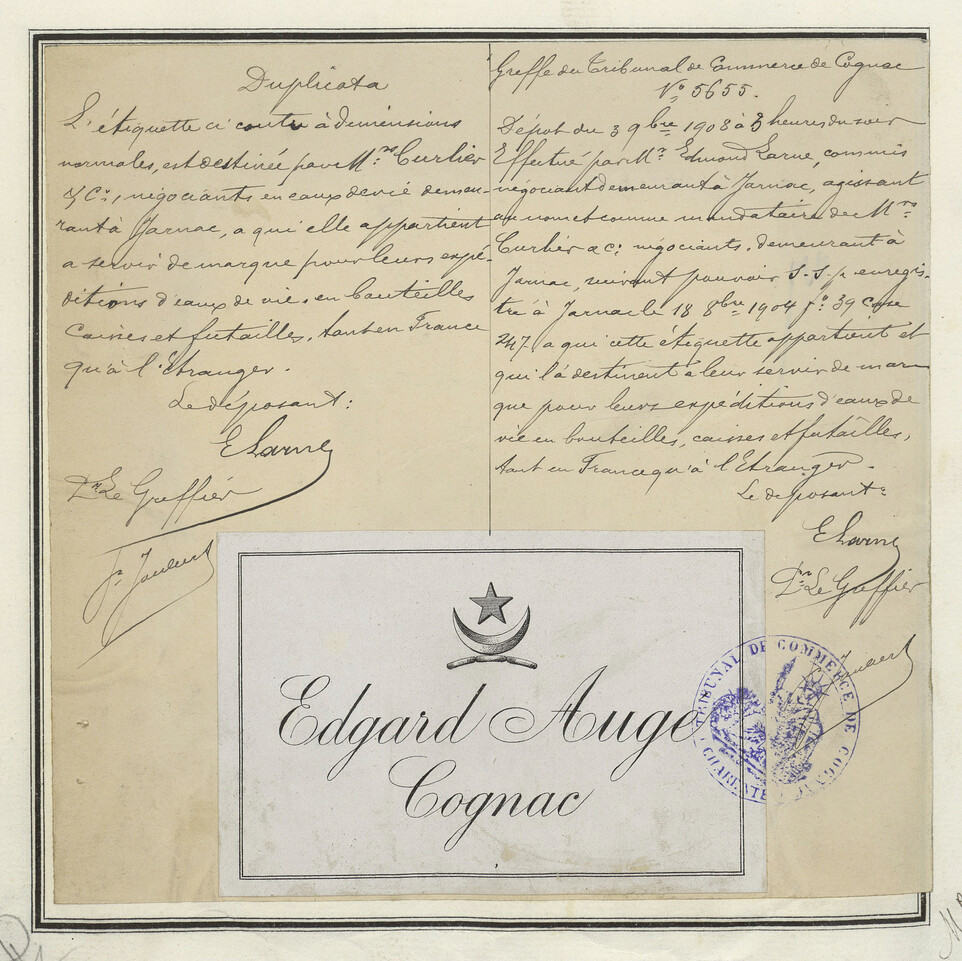 Duplicata
L'étiquette ci contre à dimensions
normales, est destinée par M.rs Curlier
& Cie, négociants en eaux de vie demeu-
rant à Jarnac, a qui elle appartient
a servir de marque pour leurs expé-
ditions d'eaux de vie en bouteilles
Caisses et futailles, tant en France
qu'à l'Etranger.
Le déposant:
E Larue
Pr Le Greffier
Greffe du Tribunal de Commerce de Cognac
No 5655.
Dépot du 3 9bre 1908 à 3 heures du soir
Effectué par Mr Edmond Larue, commis
négociant demeurant à Jarnac, agissant
au nom et comme mandataire de Mrs
Curlier & Cie négociants, demeurant à
Jarnac, suivant pouvoir S.S.p. enregis-
tré à Jarnac le 18 8bre 1904 fo 39 Case
247 a qui cette étiquette appartient et
qui la destinent à leur servir de mar-
que pour leurs expéditions d'eaux de
vie en bouteilles, caisses et futailles,
tant en France qu'à l'Etranger.
Le deposant:
E Larue
Pr Le Greffier
Edgard Auge
Cognac
TRIBUNAL DE COMMERCE DE COGNAC
CHARENTE